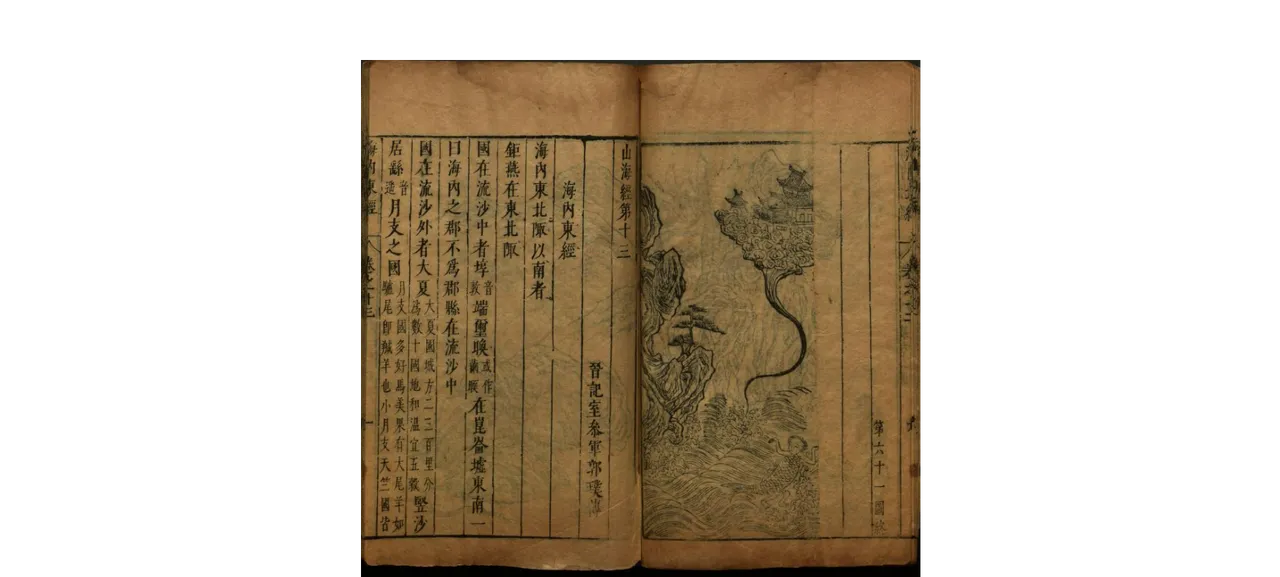 第六十一圖
山海經第十三
晉記室參軍郭璞
海內東經
海內東北陬以南者
鉅燕在東北陬
國在流沙中者埻音敦端璽㬇或作繭㬇在崑崙墟東南一
曰海內之郡不爲郡縣在流沙中
國在流沙外者大夏大夏國城方二三百里分爲數十國地和溫宜五穀豎沙
居繇音遙月支之國月支國多好馬美果有大尾羊如驢尾卽羬羊也小月支天竺國皆
海內東經
卷之十三